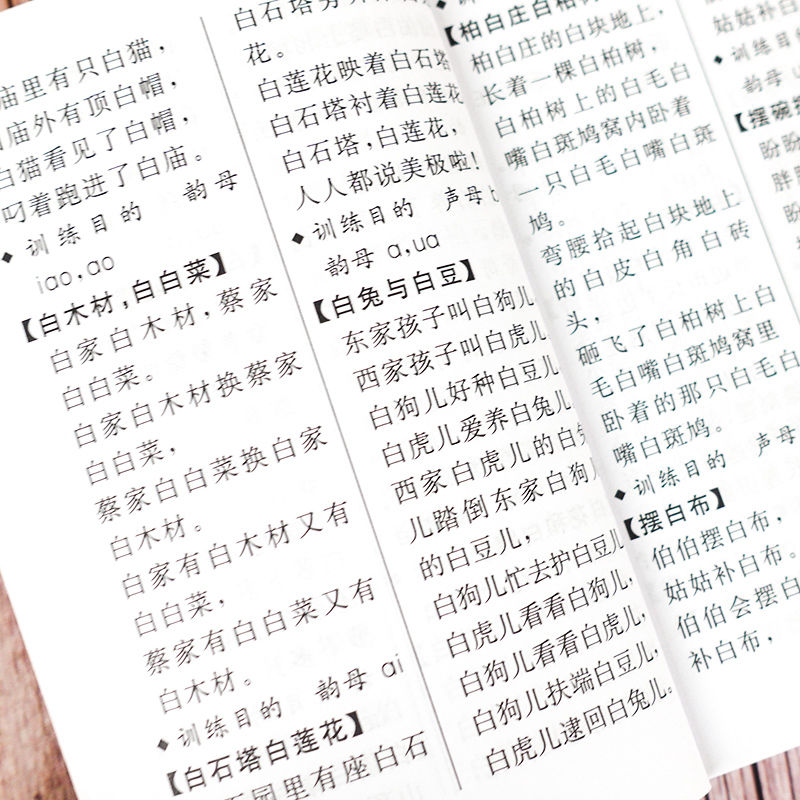 庙里有只白猫，
庙外有顶白帽，
白猫看见了白帽，
叼着跑进了白庙。
◆训练目的 韵母
iao,ao
【白木材,白白菜】
白家白木材,蔡家
白白菜。
白家白木材换蔡家
白白菜，
蔡家白白菜换白家
白木材。
白家有白木材又有
白白菜，
蔡家有白白菜又有
白木材。
◆训练目的 韵母 ai
【白石塔白莲花】
园里有座白石
白石塔
花。
白莲花映着白石塔
白石塔衬着白莲花
白石塔,白莲花，
人人都说美极啦!
◆训练目的 声母b
韵母 a,ua
【白兔与白豆】
东家孩子叫白狗儿
西家孩子叫白虎儿
白狗儿好种白豆儿
白虎儿爱养白兔儿
西家白虎儿的白兔
儿踏倒东家白狗儿
的白豆儿，
白狗儿忙去护白豆儿
白虎儿看看白狗儿，
白狗儿看看白虎儿，
白狗儿扶端白豆儿，
白虎儿逮回白兔儿。
【柏白庄白柏
柏白庄的白块地上，
长着一棵白柏树，
白柏树上的白毛白
嘴白斑鸠窝内卧着
一只白毛白嘴白斑
鸠。
弯腰拾起白块地上
的白皮白角白砖
头，
砸飞了白柏树上白
毛白嘴白斑鸠窝里
卧着的那只白毛白
嘴白斑鸠。
◆训练目的 声母
【摆白布】
伯伯摆白布，
姑姑补白布。
伯伯会摆白
补白布，
姑姑补白
◆训练目
韵母
【摆碗
盼
胖
盼